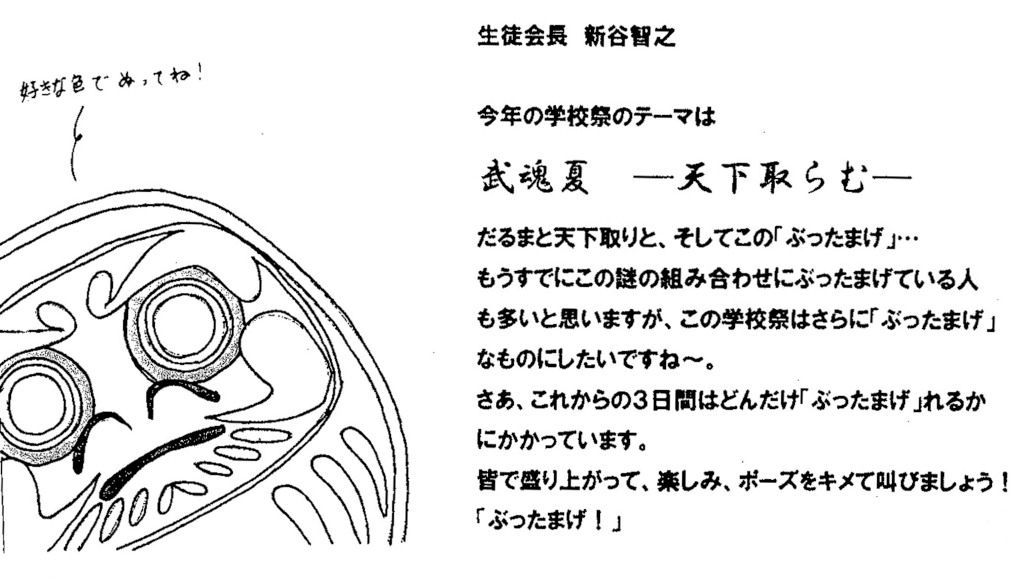 好きな色でぬってね！
生徒会長　新谷智之
今年の学校祭のテーマは
武魂夏　―天下取らむ―
だるまと天下取りと、そしてこの「ぶったまげ」…
もうすでにこの謎の組み合わせにぶったまげている人
も多いと思いますが、この学校祭はさらに「ぶったまげ」
なものにしたいですね～。
さあ、これからの３日間はどんだけ「ぶったまげ」れるか
にかかっています。
皆で盛り上がって、楽しみ、ポーズをキメて叫びましょう！
「ぶったまげ！」